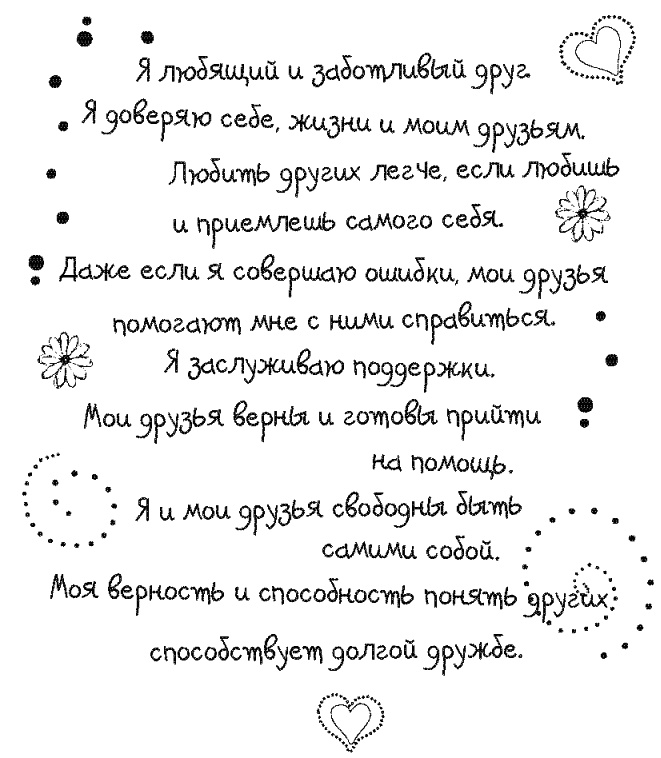 Я любящий и заботливый друг.
Я доверяю себе, жизни и моим друзьям.
Любить других легче, если любишь
и приемлешь самого себя.
Даже если я совершаю ошибки, мои друзья
помогают мне с ними справиться.
Я заслуживаю поддержки.
Мои друзья верны и готовы прийти
на помощь.
Я и мои друзья свободны быть
самими собой.
Моя верность и способность понять других
способствует долгой дружбе.